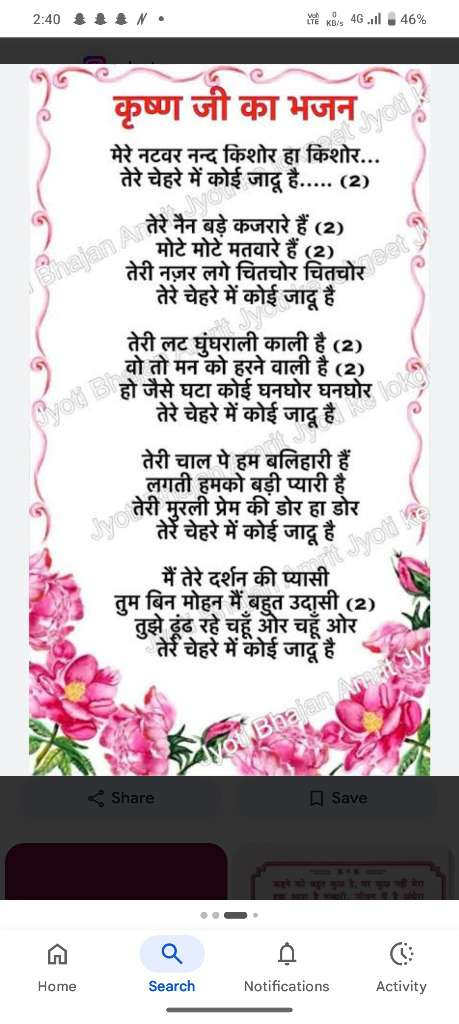 2:40
Voll LTE
0 KB/s
4G
46%
कृष्ण जी का भजन
मेरे नटवर नन्द किशोर हा किशोर...
तेरे चेहरे में कोई जादू है..... (2)
तेरे नैन बड़े कजरारे हैं (2)
मोटे मोटे मतवारे हैं (2)
तेरी नज़र लगे चितचोर चितचोर
तेरे चेहरे में कोई जादू है
तेरी लट घुंघराली काली है (2)
वो तो मन को हरने वाली है (2)
हो जैसे घटा कोई घनघोर घनघोर
तेरे चेहरे में कोई जादू है
तेरी चाल पे हम बलिहारी हैं
लगती हमको बड़ी प्यारी है
तेरी मुरली प्रेम की डोर हा डोर
तेरे चेहरे में कोई जादू है
मैं तेरे दर्शन की प्यासी
तुम बिन मोहन मैं बहुत उदासी (2)
तुझे ढूंढ रहे चहूँ ओर चहूँ ओर
तेरे चेहरे में कोई जादू है
Jyoti Bhajan Amrit Jyoti ke lokgeet
Share
Save
Home
Search
Notifications
Activity